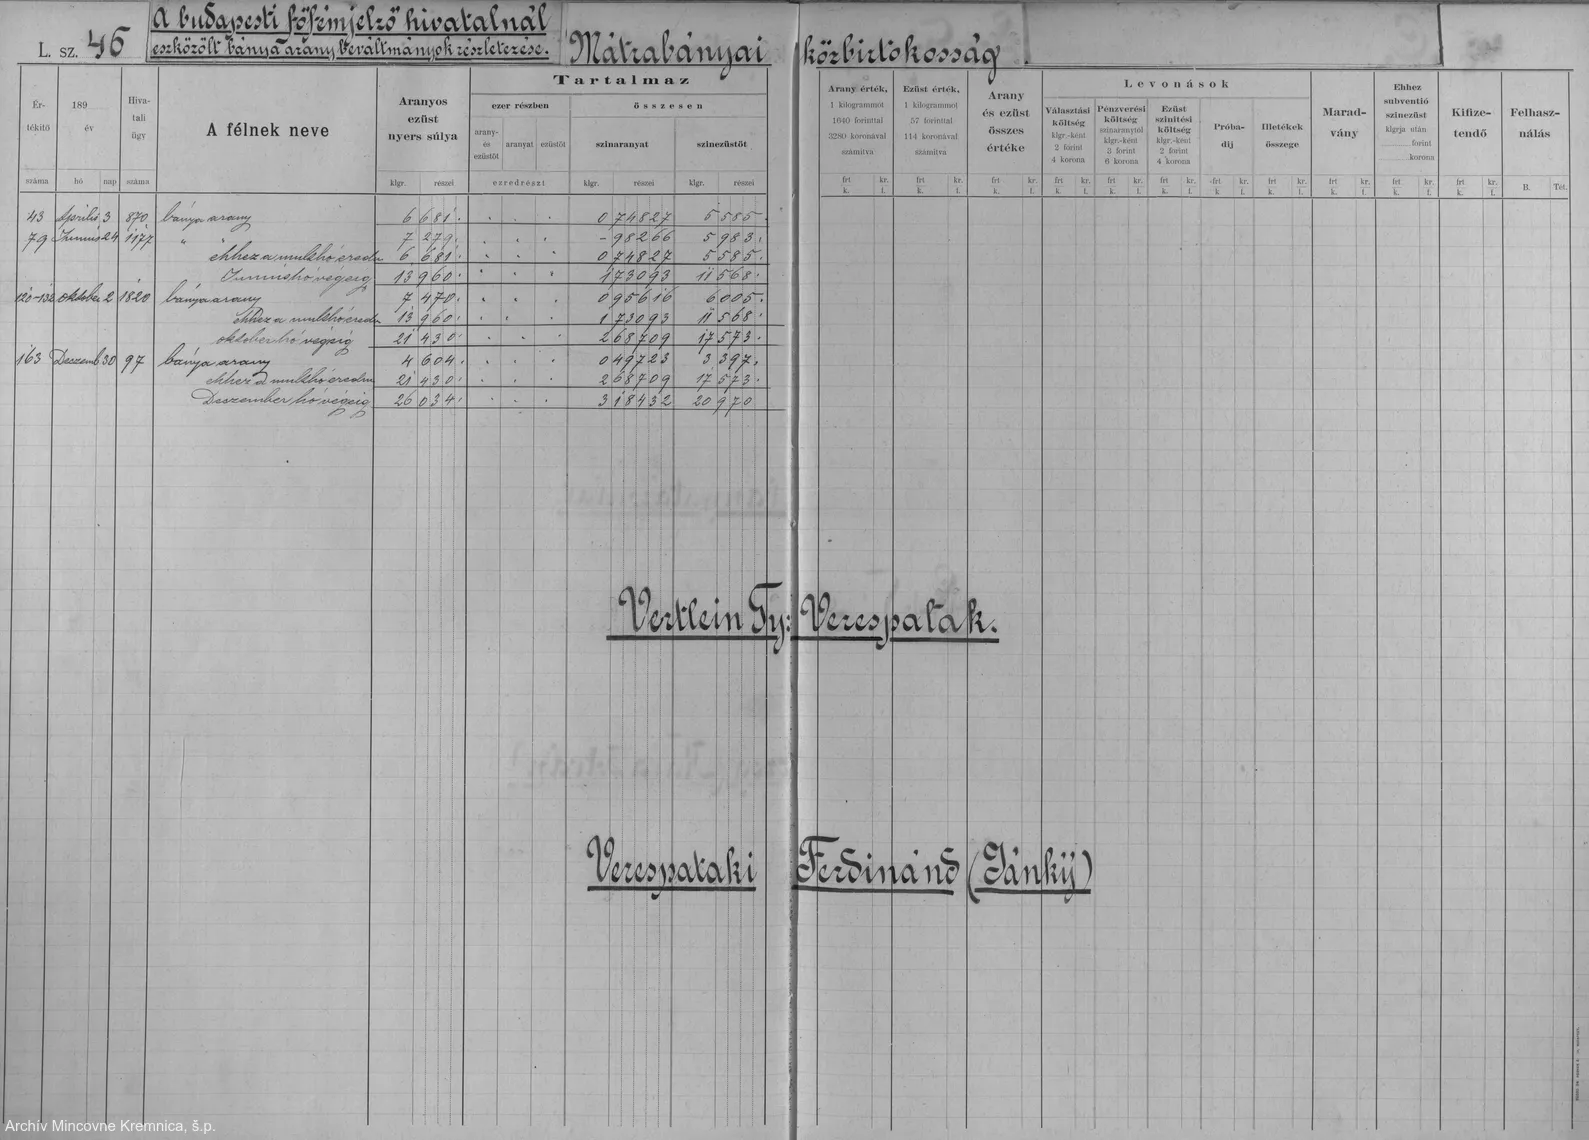 L. sz. 46
A budapesti főfémjelző hivatalnál
eszközölt bánya arany beváltmányok részletezése.
Mátrabányai közbirtokosság
Értékítő száma
189 év hó nap
Hivatali ügy száma
A félnek neve
Aranyos ezüst nyers súlya klgr. részei
Tartalmaz
ezer részben
arany- és ezüstöt aranyat ezüstöt
ezredrészt
összesen
szinaranyat klgr. részei
szinezüstöt klgr. részei
Arany érték, 1 kilogrammot 1640 forinttal 3280 koronával számítva frt kr. k. f.
Ezüst érték, 1 kilogrammot 57 forinttal 114 koronával számítva frt kr. k. f.
Arany és ezüst összes értéke frt kr. k. f.
Levonások
Választási költség klgr.-ként 2 forint 4 korona frt kr. k. f.
Pénzverési költség szinaranytól klgr.-ként 3 forint 6 korona frt kr. k. f.
Ezüst szinitési költség klgr.-ként 2 forint 4 korona frt kr. k. f.
Próbadij frt kr. k. f.
Illetékek összege frt kr. k. f.
Maradvány frt kr. k. f.
Ehhez subventió szinezüst klgrja után forint korona frt kr. k. f.
Kifizetendő frt kr. k. f.
Felhasználás B. Tét.
43 Április 3 870 bánya arany 6 681 0 74827 5 585
79 Junius 24 1177 " " 7 279 - 98266 5 983
ehhez a mult hó eredm 6 681 0 74827 5 585
Junius hó végéig 13 960 1 73093 11 568
120-132 oktober 2 1820 bánya arany 7 470 0 95616 6 005
ehhez a mult hó eredm 13 960 1 73093 11 568
oktober hó végéig 21 430 2 68709 17 573
163 Deszemb 30 97 bánya arany 4 604 0 49723 3 397
ehhez a mult hó eredm 21 430 2 68709 17 573
Deszember hó végéig 26 034 3 18432 20 970
Vertlein Gy: Verespatak.
Verespataki Ferdinánd (Jánkÿ)
Archív Mincovne Kremnica, š.p.